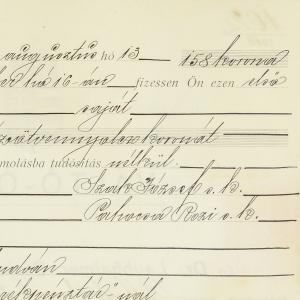 augusztus hó 13 158 korona
ber hó 16-án fizessen Ön ezen első
saját
ötvennyolcz koronát
molásba tudósítás nélkül.
Szabó József s. k.
Rozi s. k.
nál